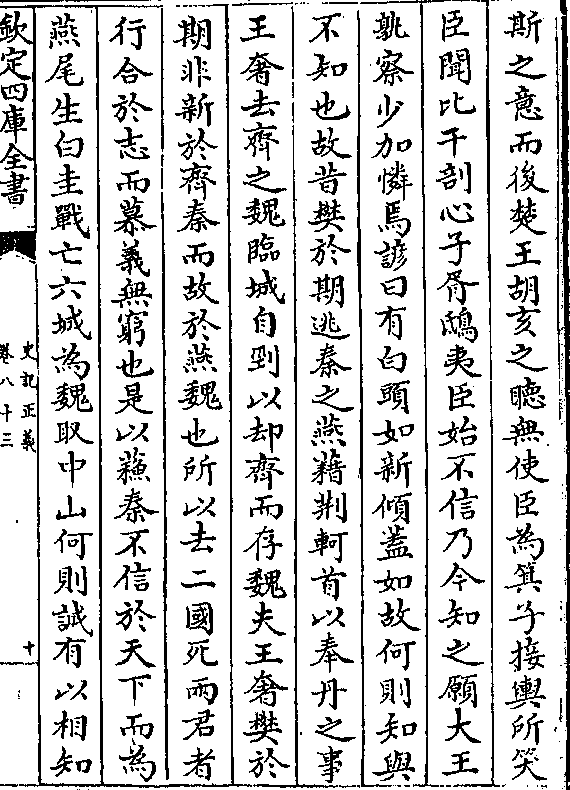 斯之意而後楚王胡亥之聴無使臣為箕子接輿所笑
臣聞比干剖心子胥鴟夷臣始不信乃今知之願大王
孰察少加憐焉諺曰有白頭如新傾蓋如故何則知與
不知也故昔樊於期逃秦之燕藉荆軻首以奉丹之事
王奢去齊之魏臨城自剄以却齊而存魏夫王奢樊於
期非新於齊秦而故於燕魏也所以去二國死兩君者
行合於志而慕義無窮也是以蘇秦不信於天下而為
燕尾生白圭戰亡六城為魏取中山何則誠有以相知
欽定四庫全書
史記正義
卷八十三
十